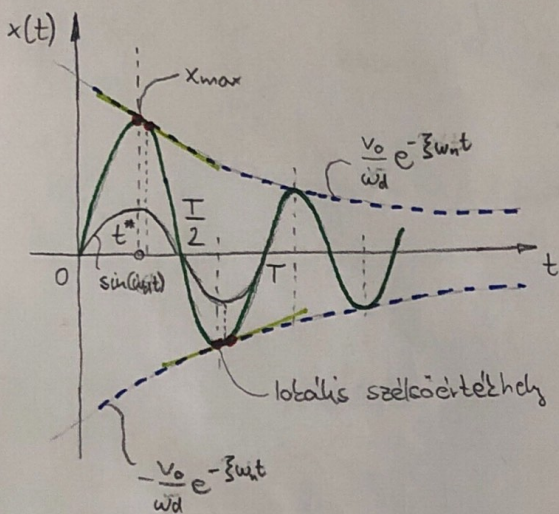 x(t)
xmax
v₀/ωd e^-ξωnt
T/2
t*
0
sin(ωdt)
T
t
lokális szélsőértékhely
-v₀/ωd e^-ξωnt